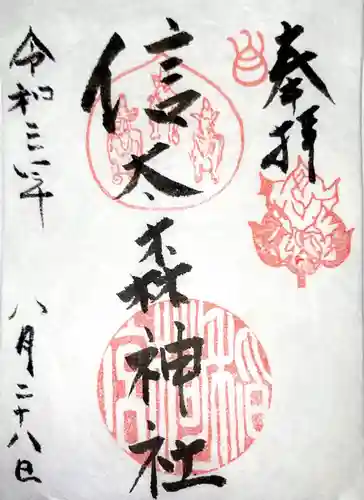 奉拝
信太森神社
令和三年
八月二十八日